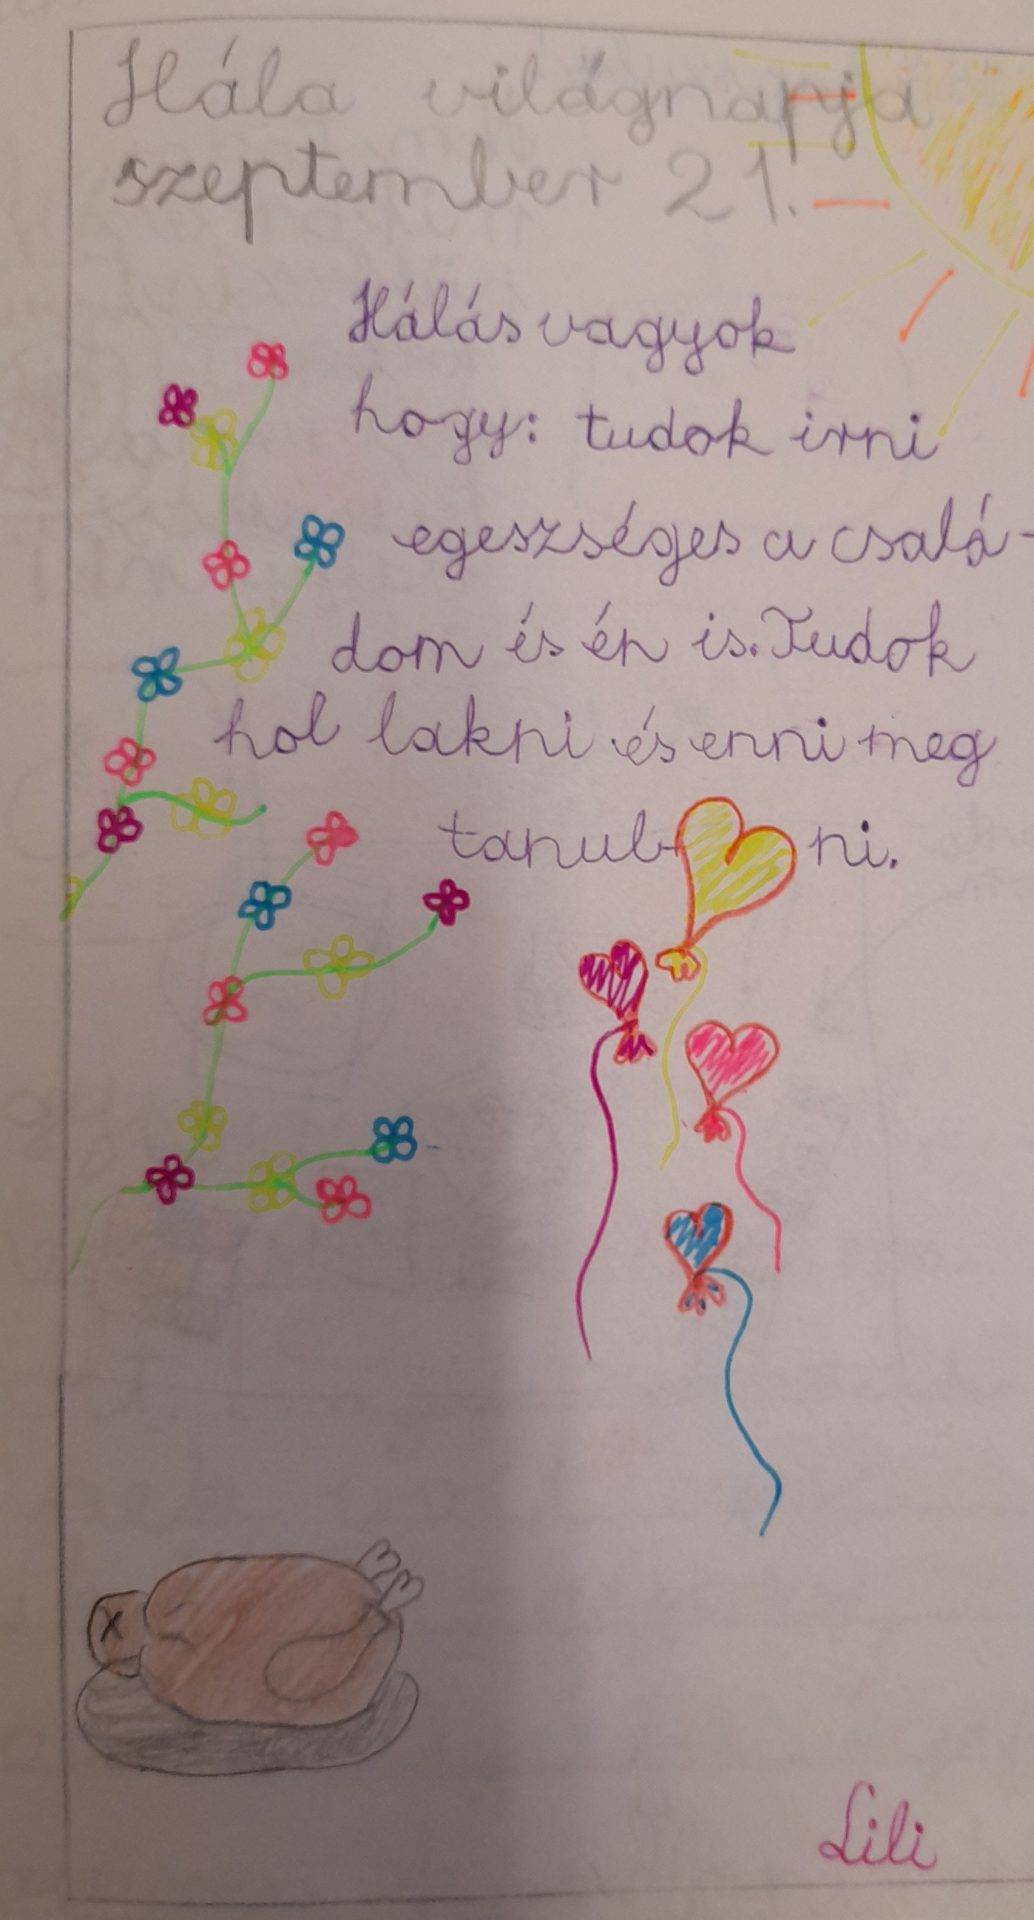 Hála világnapja
szeptember 21.
Hálás vagyok
hogy: tudok irni
egeszséges a csalá-
dom és én is. Tudok
hol lakni és enni meg
tanulni.
Lili